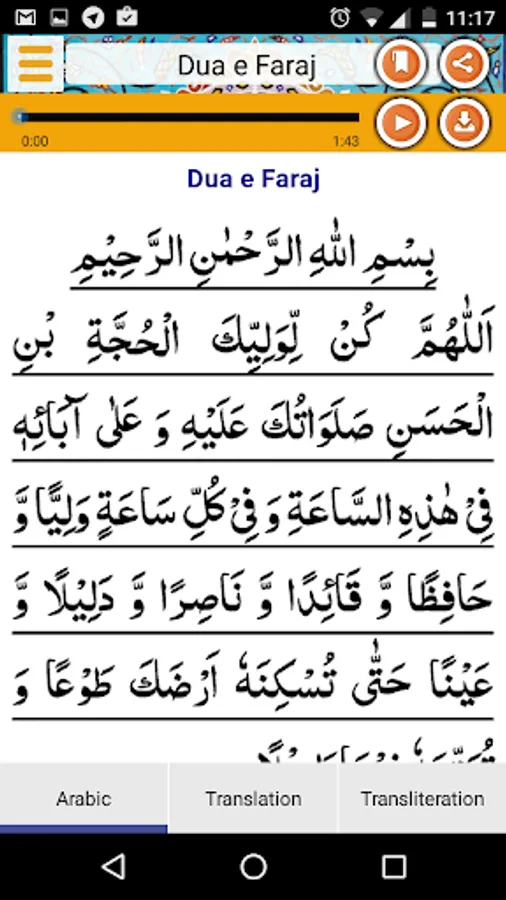 11:17
Dua e Faraj
0:00
1:43
Dua e Faraj
بِسْمِ اللهِ الرَّحْمٰنِ الرَّحِيْمِ
اَللّٰهُمَّ كُنْ لِّوَلِيِّكَ الْحُجَّةِ بْنِ
الْحَسَنِ صَلَوَاتُكَ عَلَيْهِ وَ عَلٰى آبَائِهٖ
فِيْ هٰذِهِ السَّاعَةِ وَ فِيْ كُلِّ سَاعَةٍ وَلِيًّا وَّ
حَافِظًا وَّ قَائِدًا وَّ نَاصِرًا وَّ دَلِيْلًا وَّ
عَيْنًا حَتّٰى تُسْكِنَهٗ اَرْضَكَ طَوْعًا وَ
Arabic
Translation
Transliteration